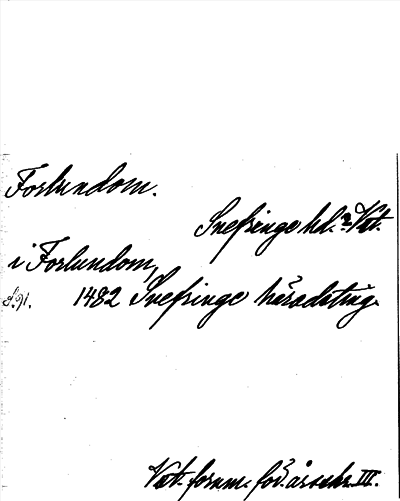 Forlundom.
Snefringe hd. ? Vst.
i Forlundom,
s. 91. 1482 Snefringe häradsting.
Vst. fornm. för. årsskr. III.